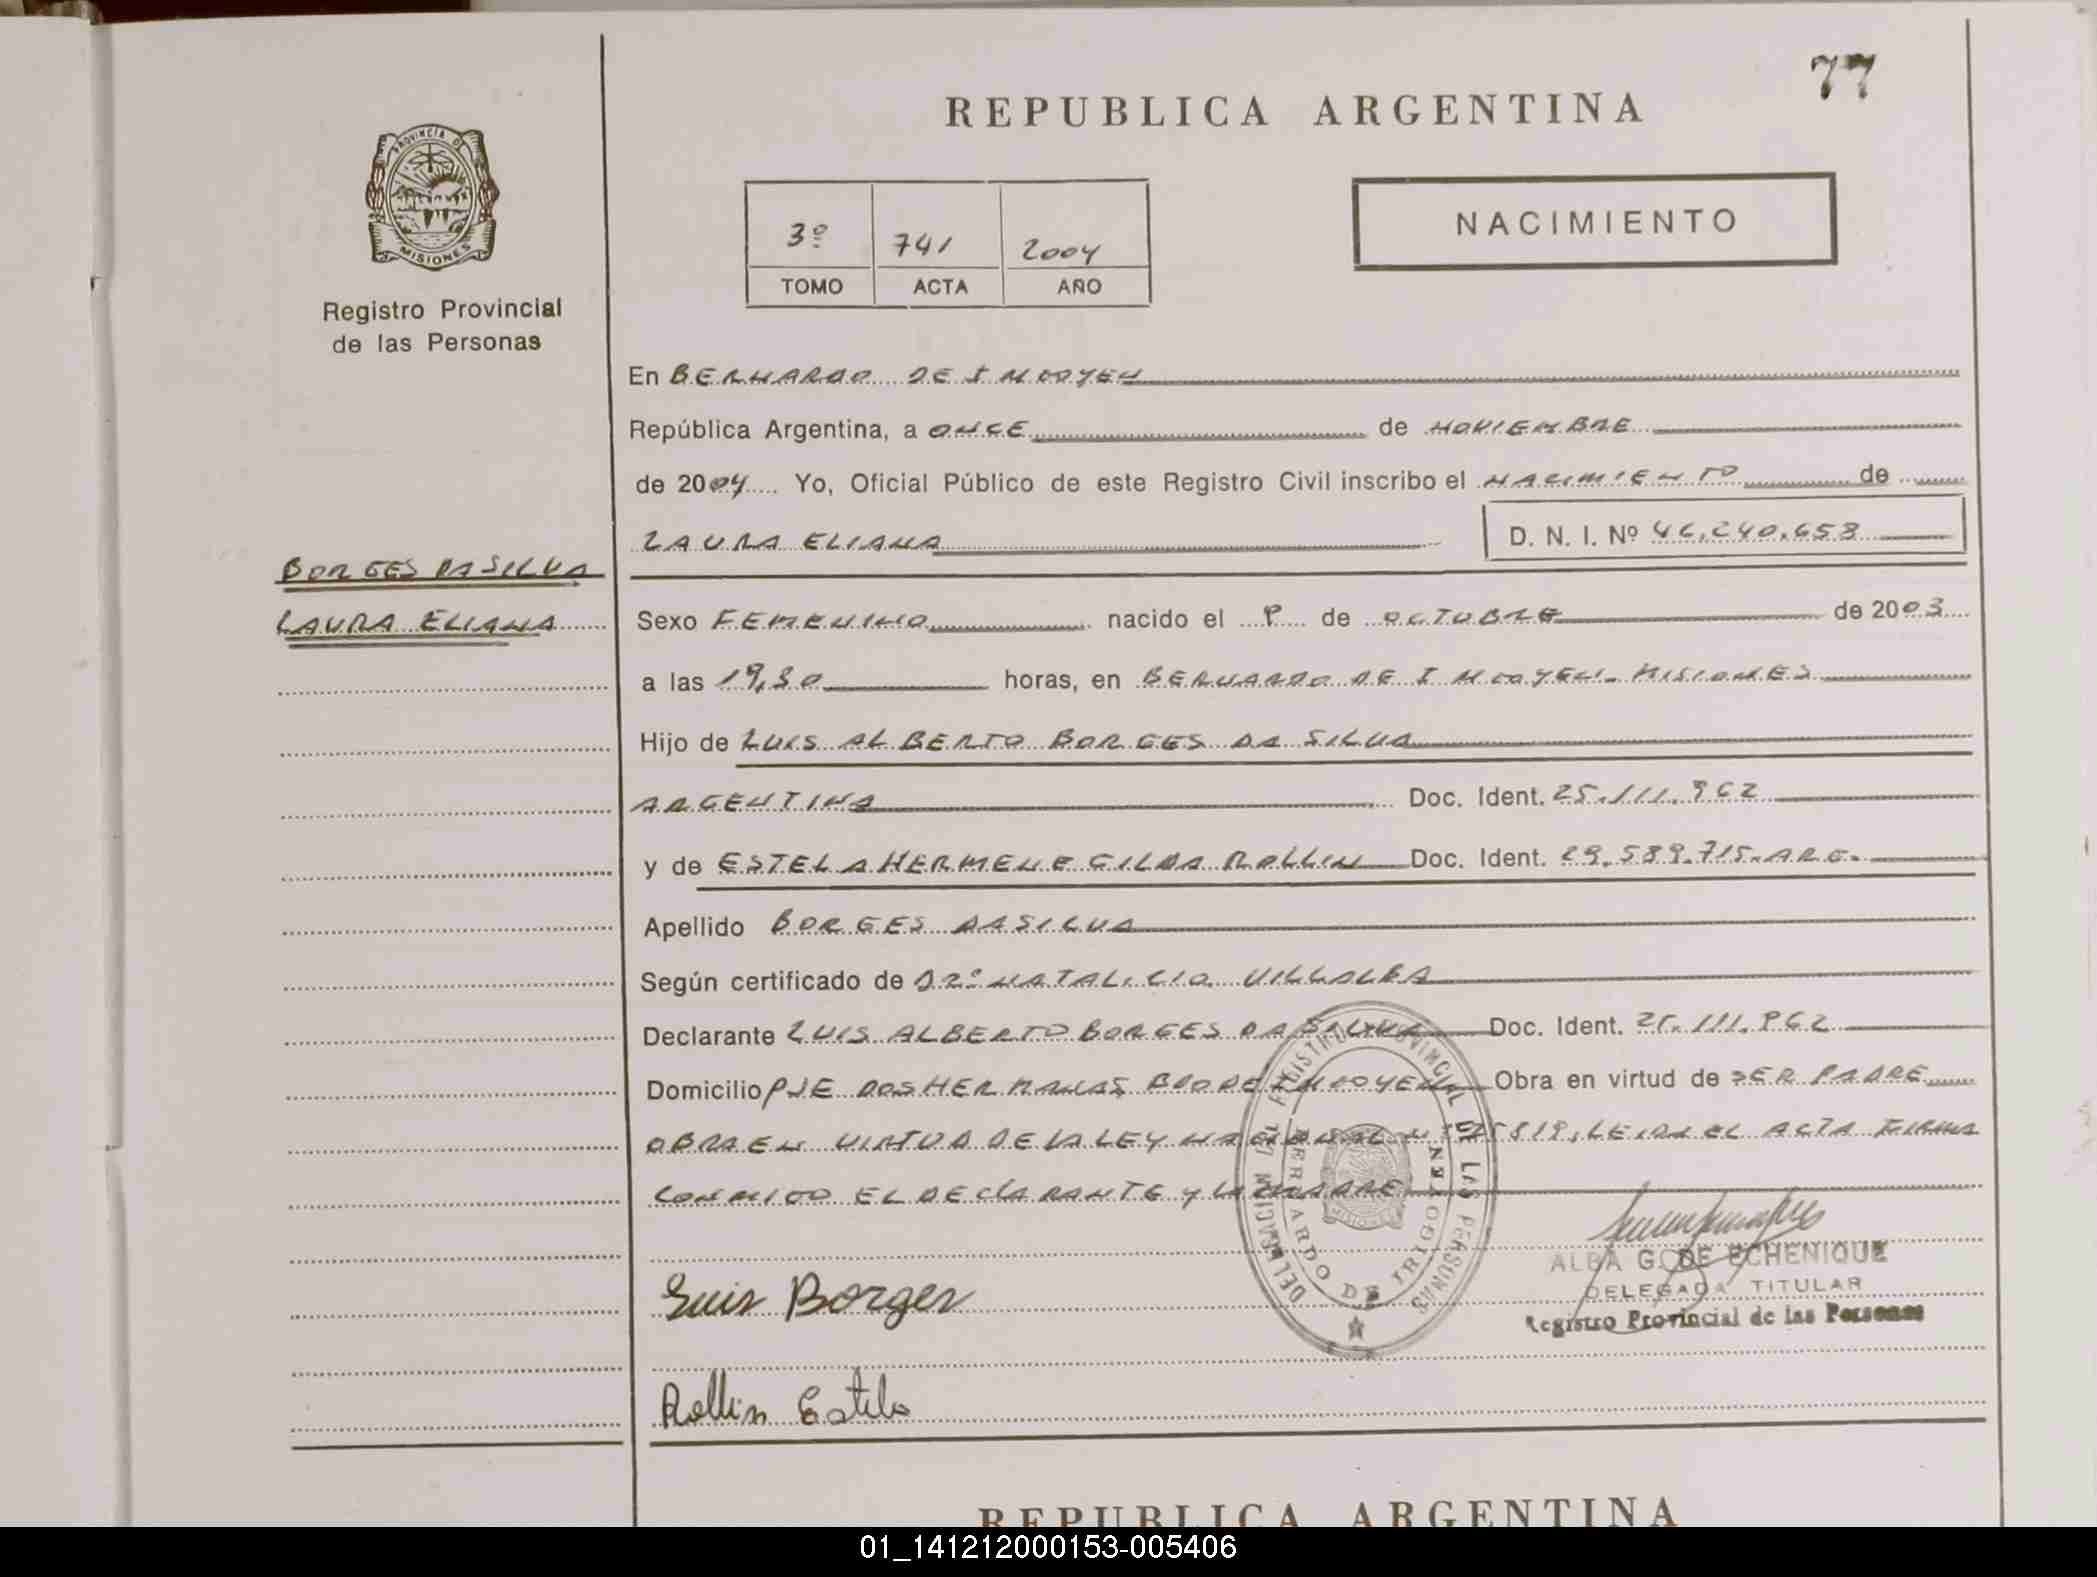 77
REPUBLICA ARGENTINA
PROVINCIA DE
MISIONES
Registro Provincial
de las Personas
NACIMIENTO
3º 741 2004
TOMO ACTA AÑO
En BERNARDO DE IRIGOYEN
República Argentina, a ONCE de NOVIEMBRE
de 2004 Yo, Oficial Público de este Registro Civil inscribo el NACIMIENTO de
LAURA ELIANA D. N. I. Nº 46.240.658
BORGES DA SILVA
LAURA ELIANA
Sexo FEMENINO nacido el de OCTUBRE de 2003
a las 19,30 horas, en BERNARDO DE IRIGOYEN. MISIONES
Hijo de LUIS ALBERTO BORGES DA SILVA
ARGENTINA Doc. Ident. 25.111.962
y de ESTELA HERMENEGILDA ROLLIN Doc. Ident. 29.589.715.ARG.
Apellido BORGES DA SILVA
Según certificado de DRº NATALICIO VILLALBA
Declarante LUIS ALBERTO BORGES DA SILVA Doc. Ident. 25.111.962
Domicilio PJE DOS HERMANAS BDO DE IRIGOYEN Obra en virtud de SER PADRE
OBRA EN VIRTUD DE LA LEY NACIONAL Nº 25819, LEIDA EL ACTA FIRMA
CONMIGO EL DECLARANTE Y LA MADRE
DELEGACION DEL REGISTRO PROVINCIAL DE LAS PERSONAS
BERNARDO DE IRIGOYEN
MISIONES
ALBA G. DE ECHENIQUE
DELEGADA TITULAR
Registro Provincial de las Personas
Luis Borges
Rollin Estela
REPUBLICA ARGENTINA
01_141212000153-005406